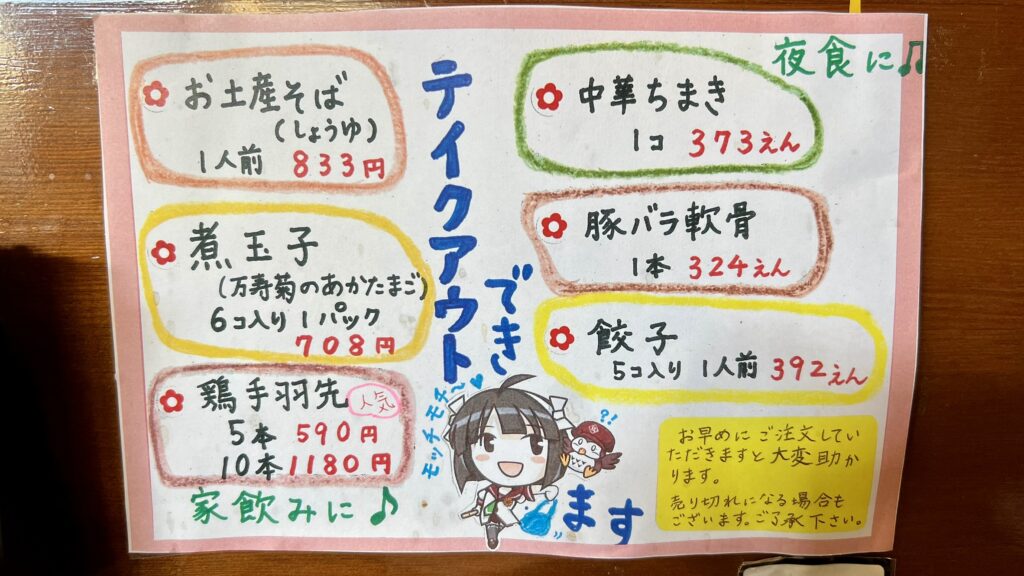 テイクアウトできます
お土産そば
(しょうゆ)
1人前 833円
煮玉子
(万寿菊のあかたまご)
6コ入り 1パック
708円
鶏手羽先 人気
5本 590円
10本 1180円
家飲みに♪
夜食に♫
中華ちまき
1コ 373えん
豚バラ軟骨
1本 324えん
餃子
5コ入り 1人前 392えん
モッチモチ〜♥
?!
お早めにご注文してい
ただきますと大変助か
ります。
売り切れになる場合も
ございます。ご了承下さい。